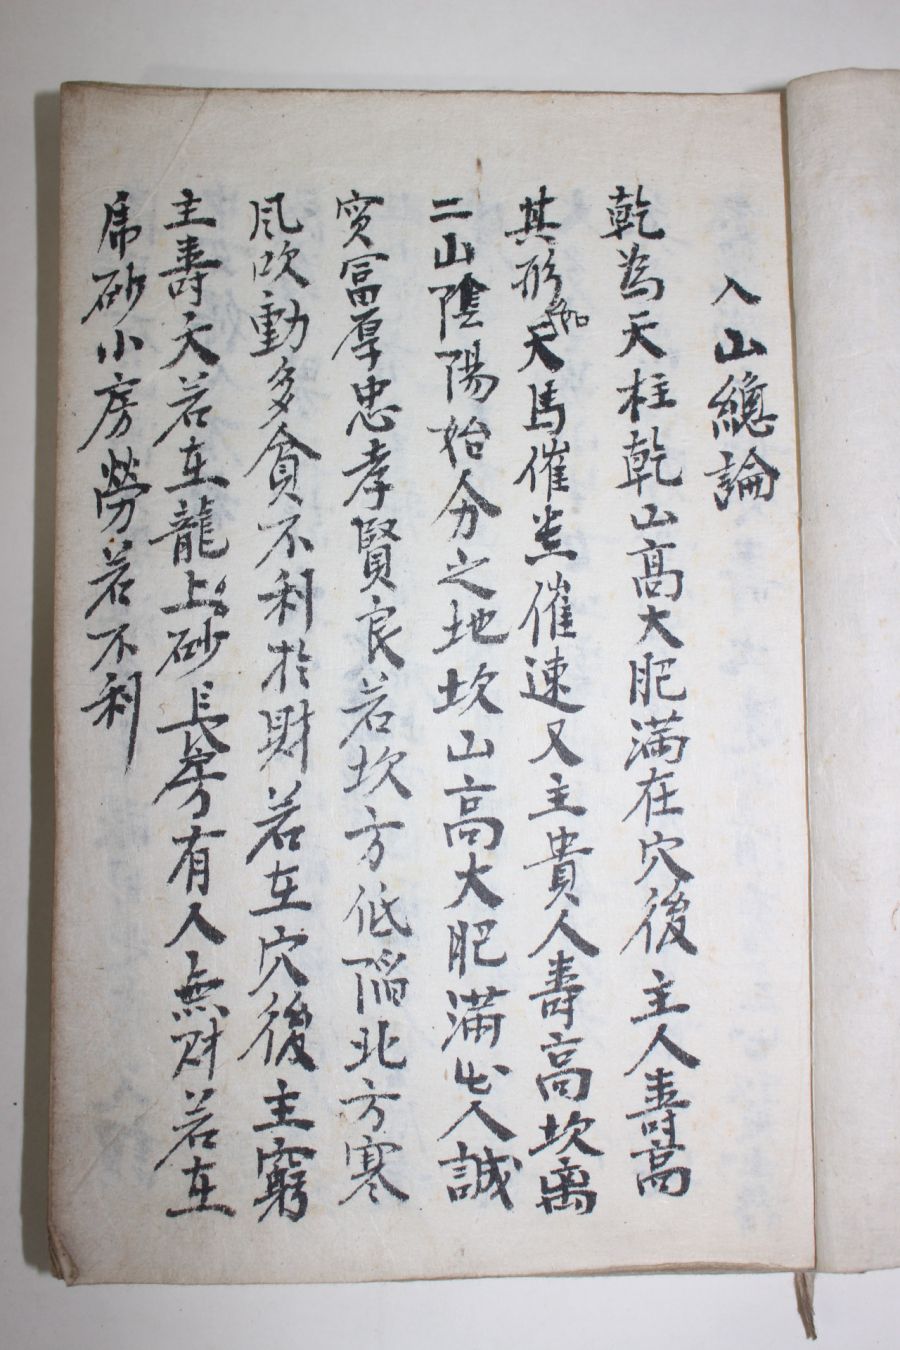 入山總論
乾為天柱乾山高大肥滿在穴後主人壽高
其形如天馬催官催速又主貴人壽高坎离
二山陰陽始分之地坎山高大肥滿出人誠
实富厚忠孝賢良若坎方低陷北方寒
風吹動多貪不利於財若在穴後主窮
主壽夭若在龍上砂長房有人無財若在
虎砂小房勞若不利